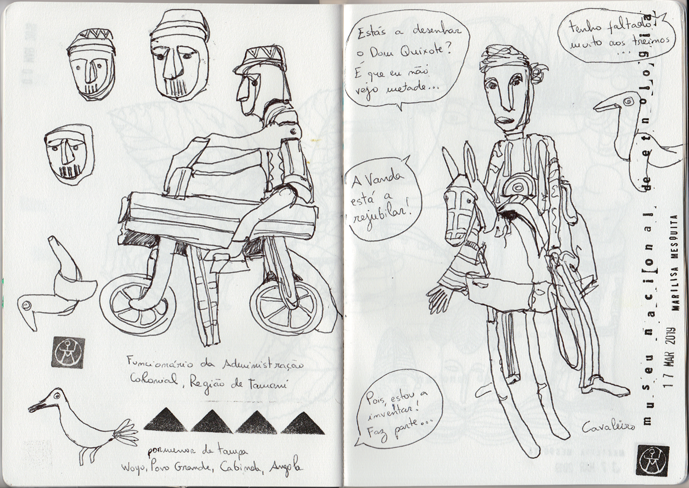 Funcionário da Administração
Colonial, Região de Tamani
pormenor de tampa
Woyo, Povo Grande, Cabinda, Angola
Estás a desenhar
o Dom Quixote?
É que eu não
vejo metade...
tenho faltado
muito aos treinos...
A Vanda
está a
rejubilar!
Pois, estou a
inventar!
Faz parte...
Cavaleiro
museu nacional de etnologia
17 MAR 2019 MARILISA MESQUITA